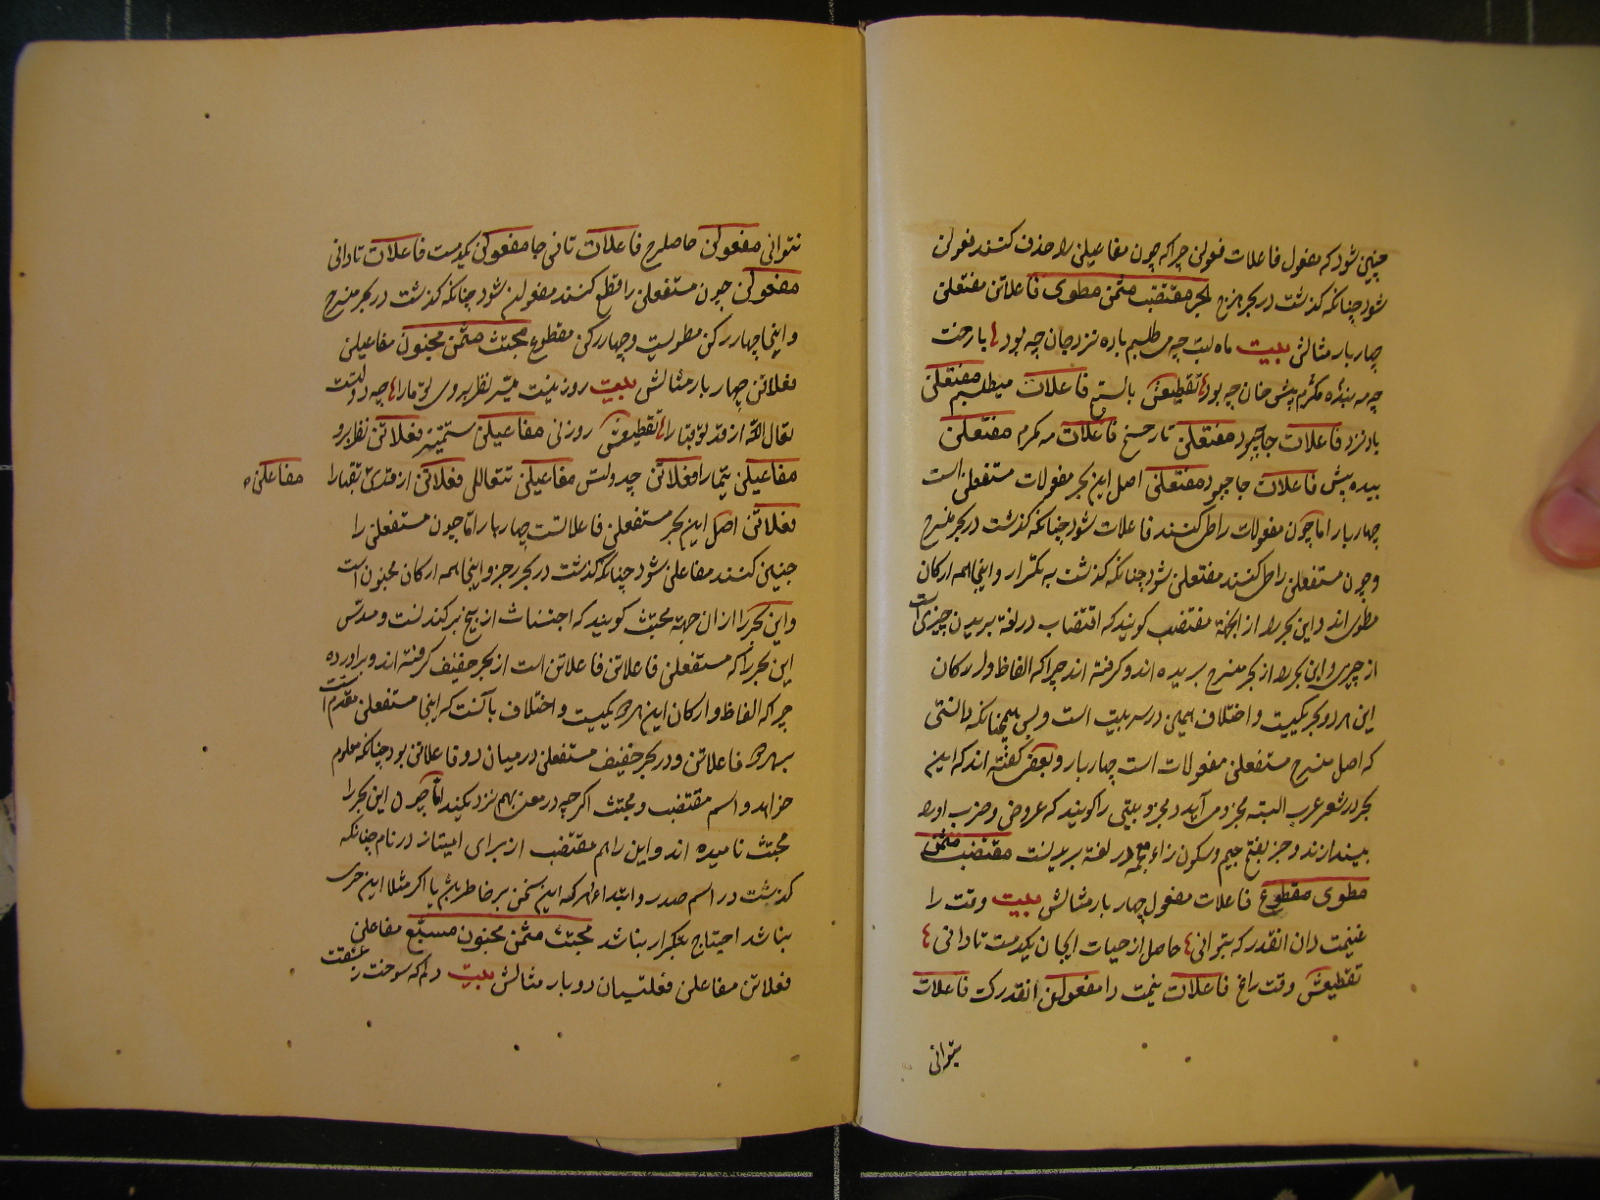 چنین شود که مفعول فاعلات فعولن چرا که چون مفاعیلن را حذف کنند فعولن
شود چنانکه گذشت در بحر هزج بحر مقتضب مثمن مطوی فاعلاتن مفتعلن
چهار بار مثالش بیت ماه لبت چه می طلبم باده نزد جان چه بود یا رخت
چه مه بنده مکرم پیش خان چه بود تقطیعش فاعلات میطلبم مفتعلن
بادنزد فاعلات جاچبود مفتعلن یارخخ فاعلات مه مکرم مفتعلن
بیده پیش فاعلات جاچبود مفتعلن اصل این بحر مفعولات مستفعلن است
چهار بار اما چون مفعولات را طی کنند فاعلات شود چنانکه گذشت در بحر منسرح
و چون مستفعلن را طی کنند مفتعلن شود چنانکه گذشت به تکرار و اینجا همه ارکان
مطوی اند و این بحر را از آنجهة مقتضب کویند که اقتضاب در لغة بریدن چیزی است
از چیزی و این بحر را از بحر منسرح بریده اند و کرفته اند چرا که الفاظ و ارکان
این هر دو بحر یکیست و اختلاف همین در سر بیت است و بس همچنانکه دانستی
که اصل منسرح مستفعلن مفعولات است چهار بار و بعضی کفته اند که این
بحر در شعر عرب البته مجزو می آید و مجزو بیتی را کویند که عروض و ضرب او را
بیندازند و جزء بفتح جیم و سکون زاء معجمه در لغة بریدنست مقتضب مثمن
مطوی مقطوع فاعلات مفعولن چهار بار مثالش بیت وقت را
غنیمت دان انقدر که بتوانی حاصل از حیات ایجان یکدمست تا دانی
تقطیعش وقت راغ فاعلات نیمت دا مفعولن انقدرک فاعلات
بتوانی
نتوانی مفعولن حاصلرح فاعلات تانی جا مفعولن یکدمست فاعلات تادانی
مفعولن چون مستفعلن را قطع کنند مفعولن شود چنانکه گذشت در بحر منسرح
و اینجا چهار رکن مطویست و چهار رکن مقطوع مجتث مثمن مخبون مفاعیلن
فعلاتن چهار بار مثالش بیت روز نیت میسر نظر بروی تو مارا چه دولتست
تعال الله از قد تو قبا را تقطیعش روزنی مفاعیلن ستمیسر فعلاتن نظر برو
مفاعیلن یتمارا فعلاتن چدولتس مفاعیلن تتعالل فعلاتن از قدی تقبارا مفاعلن
فعلاتن اصل این بحر مستفعلن فاعلاتنست چهار بار اما چون مستفعلن را
خبن کنند مفاعلن شود چنانکه گذشت در بحر رجز و اینجا همه ارکان مخبون است
و این بحر را از ان جهة مجتث کویند که اجتثاث از بیخ برکندنست و مدس
این بحر را که مستفعلن فاعلاتن فاعلاتن است از بحر خفیف کرفته اند و براورده
چرا که الفاظ و ارکان این هر دو یکیست و اختلاف بآنست که اینجا مستفعلن مقدم است
بهر دو فاعلاتن و در بحر خفیف مستفعلن در میان دو فاعلاتن بود چنانکه معلوم
خواهد و اسم مقتضب و مجتث اکر چه در معنی بهم نزدیکند اما چون این بحر را
مجتث نامیده اند و این را هم مقتضب از برای امتیاز در نام چنانکه
گذشت در اسم صدر و ابتدا هر که این سخن بر خاطرش یا اکر مثلا این حرف
نباشد احتیاج بتکرار نباشد مجتث مثمن مخبون مسبغ مفاعلن
فعلاتن مفاعلن فعلییان دو بار مثالش بیت دلم که سوخت ز عشقت